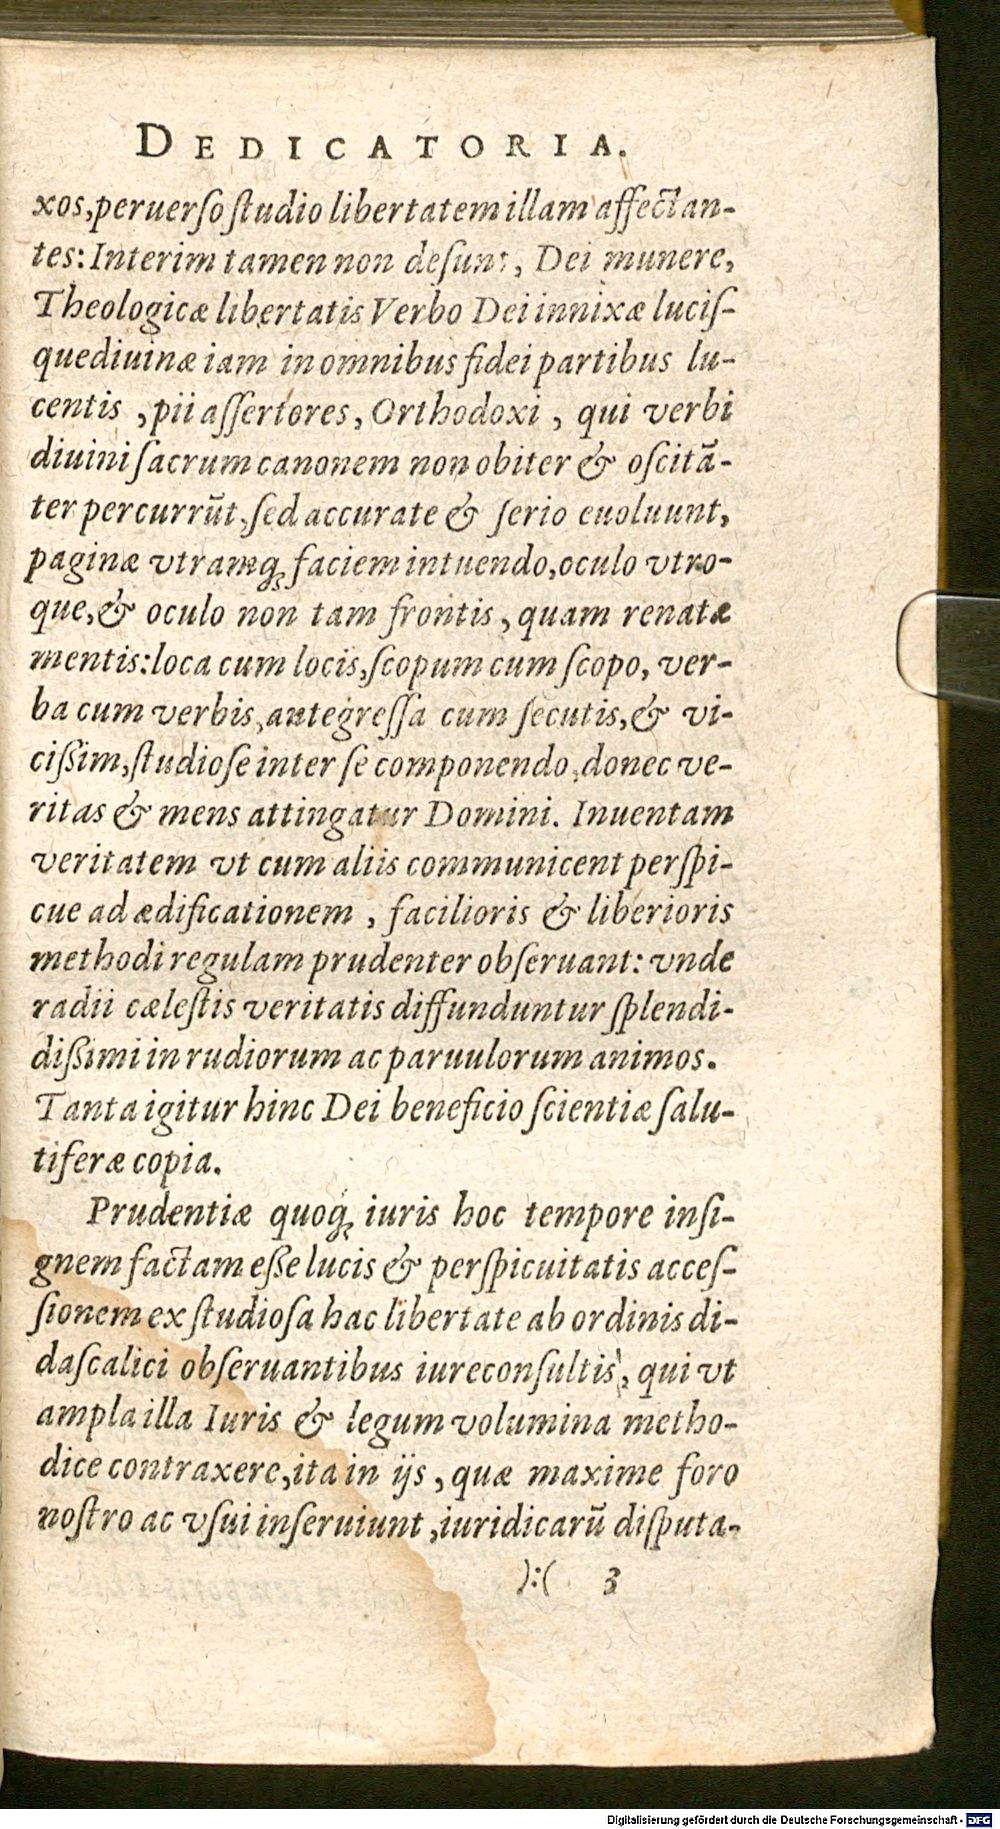 DEDICATORIA.
xos, peruerso studio libertatem illam affectan-
tes: Interim tamen non desunt, Dei munere,
Theologicæ libertatis Verbo Dei innixæ lucis-
que diuinæ iam in omnibus fidei partibus lu-
centis, pii assertores, Orthodoxi, qui verbi
diuini sacrum canonem non obiter & oscitã-
ter percurrũt, sed accurate & serio euoluunt,
paginæ vtramq; faciem intuendo, oculo vtro-
que, & oculo non tam frontis, quam renatæ
mentis: loca cum locis, scopum cum scopo, ver-
ba cum verbis, antegressa cum secutis, & vi-
cißim, studiose inter se componendo, donec ve-
ritas & mens attingatur Domini. Inuentam
veritatem vt cum aliis communicent perspi-
cue ad ædificationem, facilioris & liberioris
methodi regulam prudenter obseruant: vnde
radii cælestis veritatis diffunduntur splendi-
dißimi in rudiorum ac paruulorum animos.
Tanta igitur hinc Dei beneficio scientiæ salu-
tiferæ copia.
Prudentiæ quoq; iuris hoc tempore insi-
gnem factam eße lucis & perspicuitatis acces-
sionem ex studiosa hac libertate ab ordinis di-
dascalici obseruantibus iureconsultis, qui vt
ampla illa Iuris & legum volumina metho-
dice contraxere, ita in ijs, quæ maxime foro
nostro ac vsui inseruiunt, iuridicarũ disputa-
):( 3
Digitalisierung gefördert durch die Deutsche Forschungsgemeinschaft - DFG